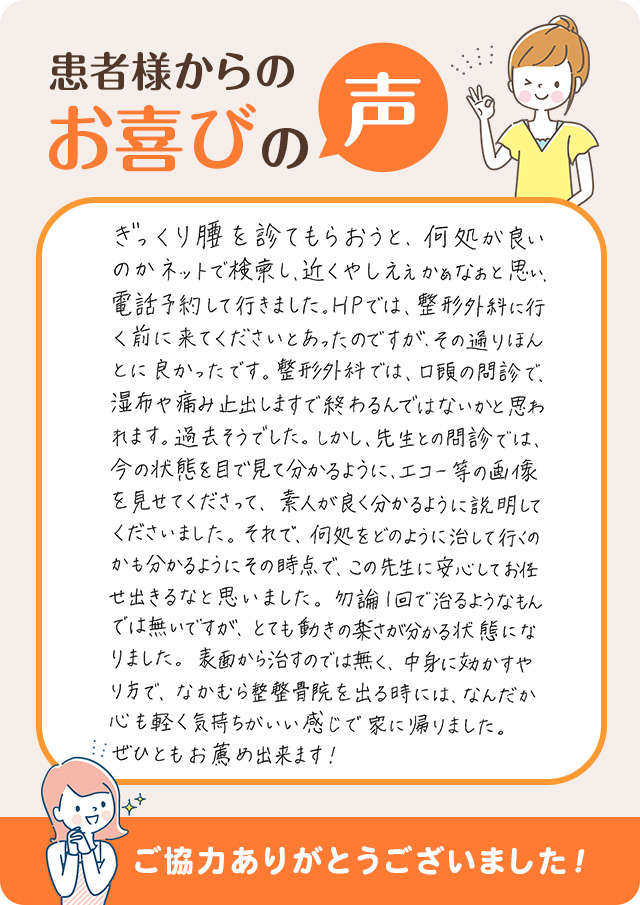 患者様からの
お喜びの声
ぎっくり腰を診てもらおうと、何処が良い
のかネットで検索し、近くやしええかぁなぁと思い、
電話予約して行きました。HPでは、整形外科に行
く前に来てくださいとあったのですが、その通りほん
とに良かったです。整形外科では、口頭の問診で、
湿布や痛み止出しますで終わるんではないかと思わ
れます。過去そうでした。しかし、先生との問診では、
今の状態を目で見て分かるように、エコー等の画像
を見せてくださって、素人が良く分かるように説明して
くださいました。それで、何処をどのように治して行くの
かも分かるようにその時点で、この先生に安心してお任
せ出きるなと思いました。勿論1回で治るようなもん
では無いですが、とても動きの楽さが分かる状態にな
りました。表面から治すのでは無く、中身に効かすや
り方で、なかむら整整骨院を出る時には、なんだか
心も軽く気持ちがいい感じで家に帰りました。
ぜひともお薦め出来ます!
ご協力ありがとうございました!